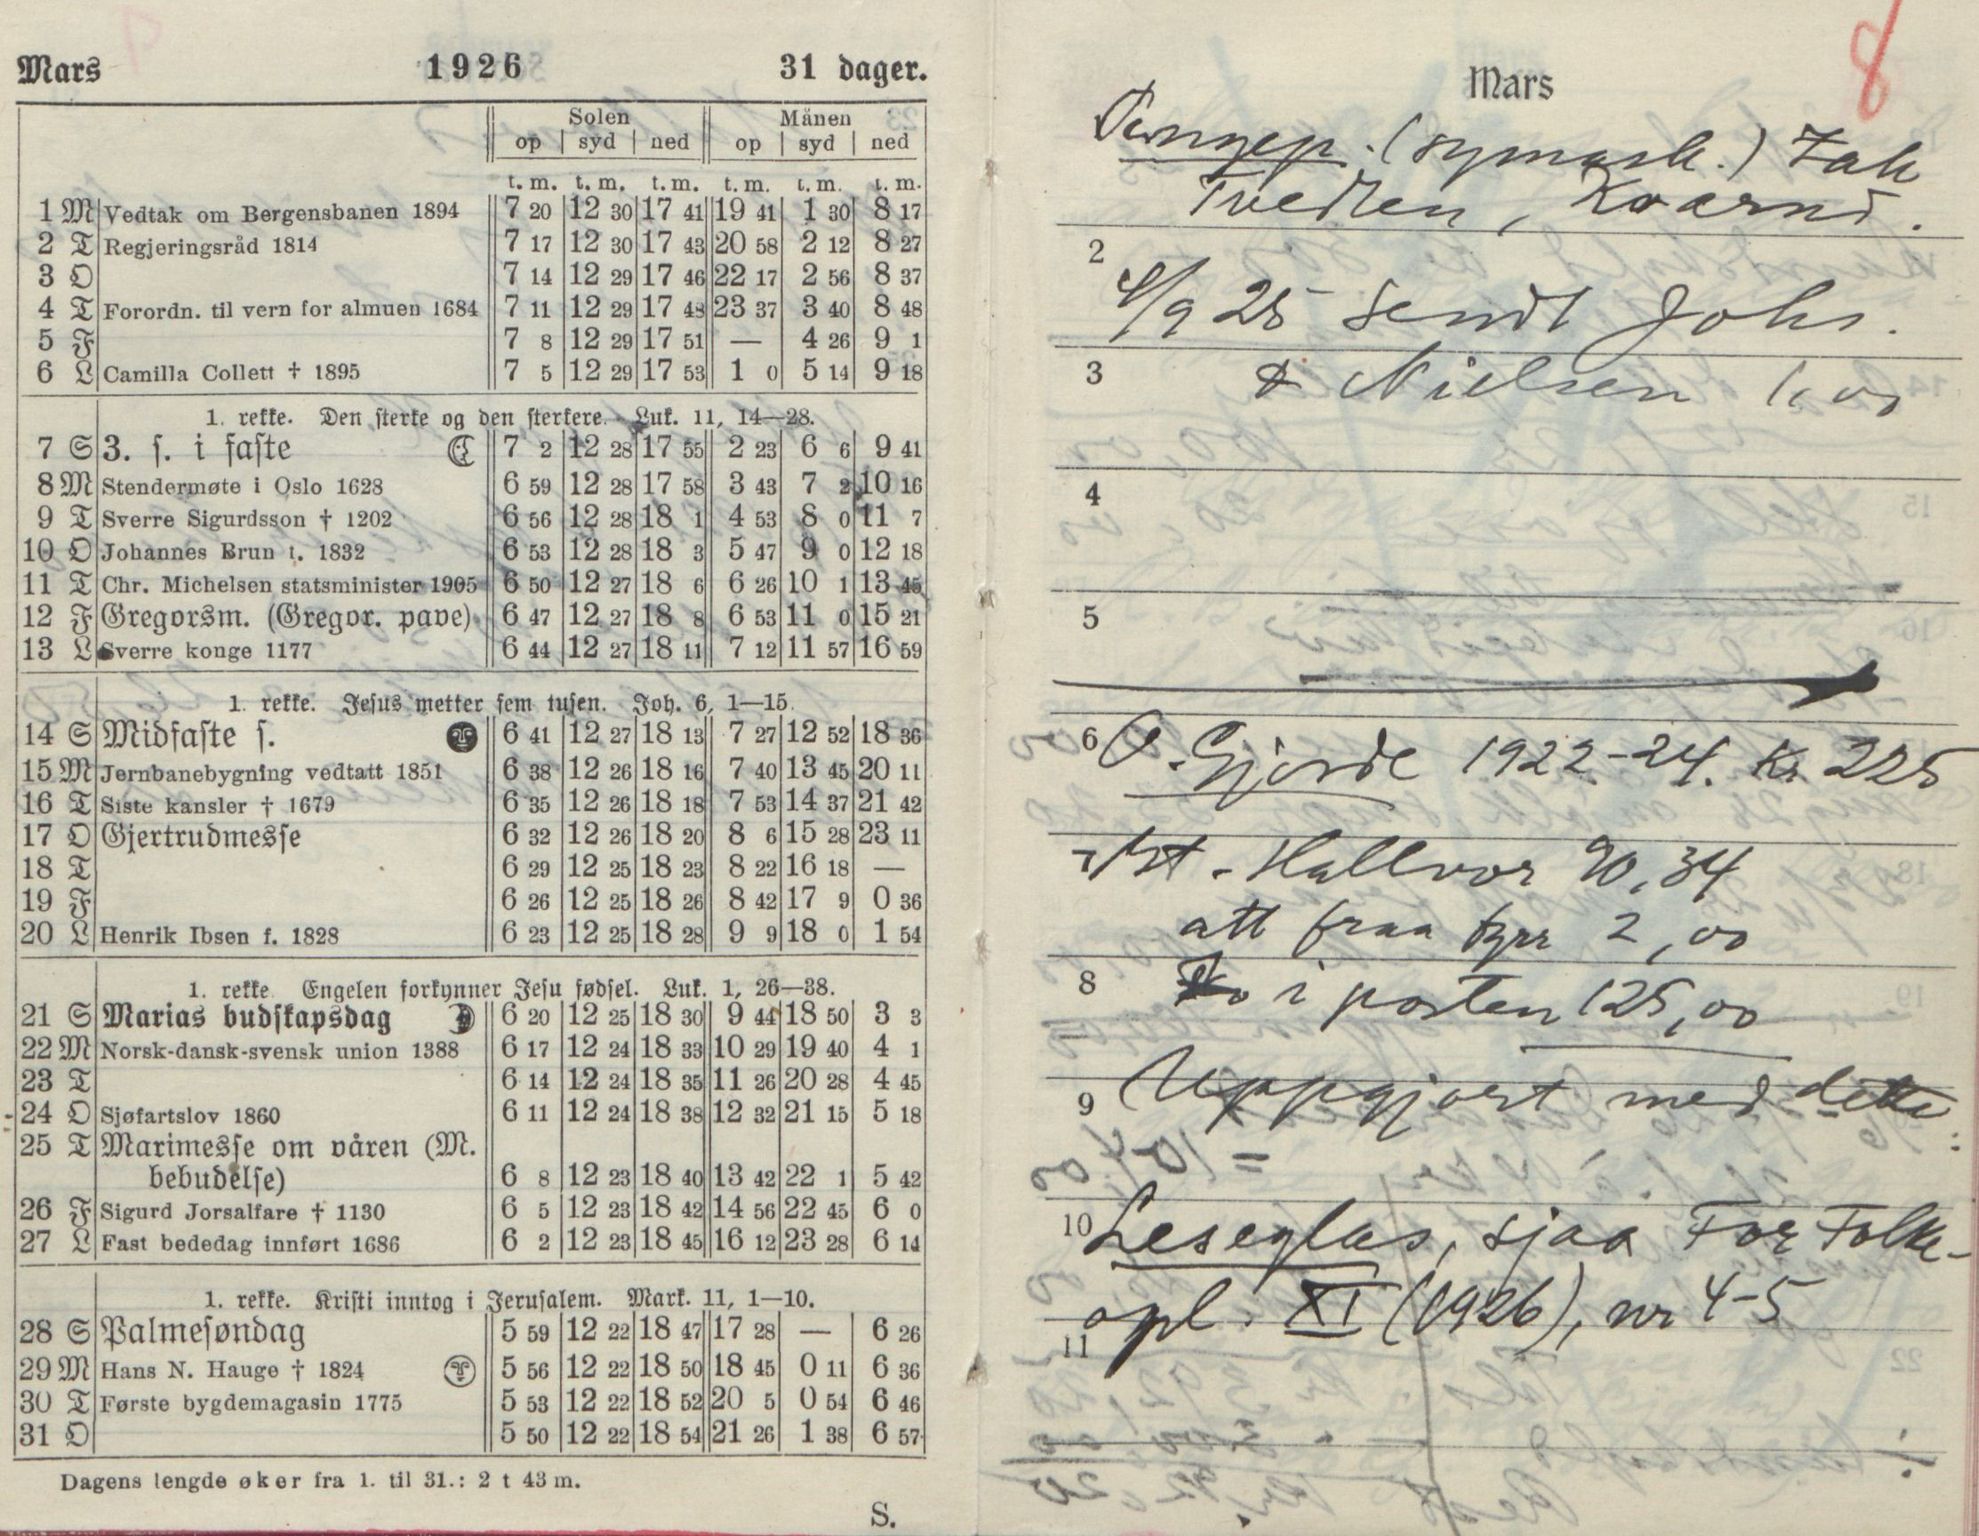 Mars 1926 31 dager.
Solen Månen
op syd ned op syd ned
t. m. t. m. t. m. t. m. t. m. t. m.
1 M Vedtak om Bergensbanen 1894 7 20 12 30 17 41 19 41 1 30 8 17
2 T Regjeringsråd 1814 7 17 12 30 17 43 20 58 2 12 8 27
3 O 7 14 12 29 17 46 22 17 2 56 8 37
4 T Forordn. til vern for almuen 1684 7 11 12 29 17 48 23 37 3 40 8 48
5 F 7 8 12 29 17 51 — 4 26 9 1
6 L Camilla Collett † 1895 7 5 12 29 17 53 1 0 5 14 9 18
1. rekke. Den sterke og den sterkere. Luk. 11, 14—28.
7 S 3. s. i faste 7 2 12 28 17 55 2 23 6 6 9 41
8 M Stendermøte i Oslo 1628 6 59 12 28 17 58 3 43 7 2 10 16
9 T Sverre Sigurdsson † 1202 6 56 12 28 18 1 4 53 8 0 11 7
10 O Johannes Brun f. 1832 6 53 12 28 18 3 5 47 9 0 12 18
11 T Chr. Michelsen statsminister 1905 6 50 12 27 18 6 6 26 10 1 13 45
12 F Gregorsm. (Gregor. pave) 6 47 12 27 18 8 6 53 11 0 15 21
13 L Sverre konge 1177 6 44 12 27 18 11 7 12 11 57 16 59
1. rekke. Jesus metter fem tusen. Joh. 6, 1—15.
14 S Midfaste s. 6 41 12 27 18 13 7 27 12 52 18 36
15 M Jernbanebygning vedtatt 1851 6 38 12 26 18 16 7 40 13 45 20 11
16 T Siste kansler † 1679 6 35 12 26 18 18 7 53 14 37 21 42
17 O Gjertrudmesse 6 32 12 26 18 20 8 6 15 28 23 11
18 T 6 29 12 25 18 23 8 22 16 18 —
19 F 6 26 12 25 18 26 8 42 17 9 0 36
20 L Henrik Ibsen f. 1828 6 23 12 25 18 28 9 9 18 0 1 54
1. rekke Engelen forkynner Jesu fødsel. Luk. 1, 26—38.
21 S Marias budskapsdag 6 20 12 25 18 30 9 44 18 50 3 3
22 M Norsk-dansk-svensk union 1388 6 17 12 24 18 33 10 29 19 40 4 1
23 T 6 14 12 24 18 35 11 26 20 28 4 45
24 O Sjøfartslov 1860 6 11 12 24 18 38 12 32 21 15 5 18
25 T Marimesse om våren (M.
bebudelse) 6 8 12 23 18 40 13 42 22 1 5 42
26 F Sigurd Jorsalfare † 1130 6 5 12 23 18 42 14 56 22 45 6 0
27 L Fast bededag innført 1686 6 2 12 23 18 45 16 12 23 28 6 14
1. rekke. Kristi inntog i Jerusalem. Mark. 11, 1—10.
28 S Palmesøndag 5 59 12 22 18 47 17 28 — 6 26
29 M Hans N. Hauge † 1824 5 56 12 22 18 50 18 45 0 11 6 36
30 T Første bygdemagasin 1775 5 53 12 22 18 52 20 5 0 54 6 46
31 O 5 50 12 22 18 54 21 26 1 38 6 57
Dagens lengde øker fra 1. til 31.: 2 t 43 m.
S.
8
Mars
(symask.) Zak
Tvedten, Kvarnd.
2
4/9 25 sendt Johs.
3 & Nielsen
4
5
6 O. Gjorde 1922-24. Kr 225
Hallvor 90,34
att fraa fyrr 2,00
8 i posten 125,00
9 Uppgjort med dette
10 Leseglas, sjaa For Folke-
opl. XI (1926), nr 4-5
11